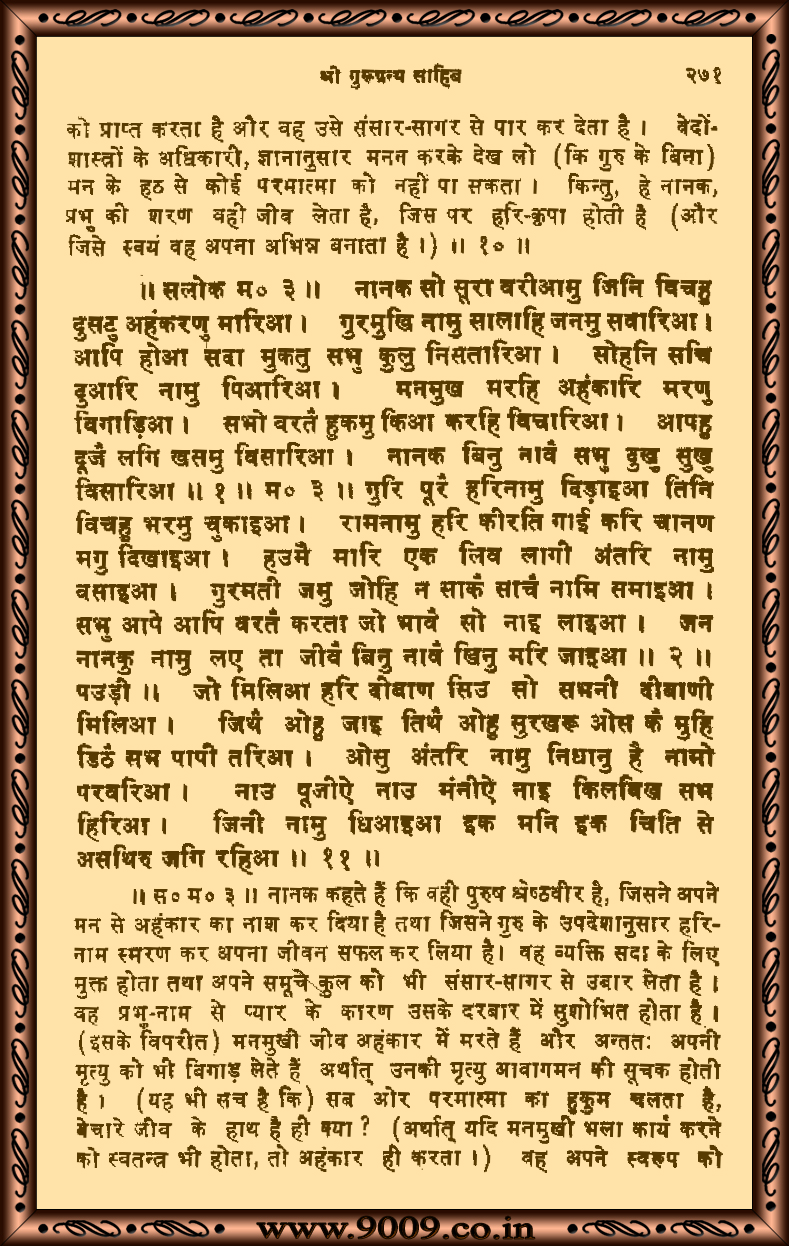 श्री गुरूग्रन्थ साहिब २७१
को प्राप्त करता है और वह उसे संसार-सागर से पार कर देता है । वेदों-
शास्त्रों के अधिकारी, ज्ञानानुसार मनन करके देख लो (कि गुरु के बिना)
मन के हठ से कोई परमात्मा को नहीं पा सकता । किन्तु, हे नानक,
प्रभु की शरण वही जीव लेता है, जिस पर हरि-कृपा होती है (और
जिसे स्वयं वह अपना अभिन्न बनाता है ।) ॥ १० ॥
॥ सलोक म० ३ ॥ नानक सो सूरा वरीआमु जिनि विचहु
दुसटु अहंकरणु मारिआ । गुरमुखि नामु सालाहि जनमु सवारिआ ।
आपि होआ सदा मुकतु सभु कुलु निसतारिआ । सोहनि सचि
दुआरि नामु पिआरिआ । मनमुख मरहि अहंकारि मरणु
विगाड़िआ । सभो वरतै हुकमु किआ करहि विचारिआ । आपहु
दूजै लगि खसमु विसारिआ । नानक बिनु नावै सभु दुखु सुखु
विसारिआ ॥ १ ॥ म० ३ ॥ गुरि पूरै हरिनामु दिड़ाइआ तिनि
विचहु भरमु चुकाइआ । रामनामु हरि कीरति गाई करि चानण
मगु दिखाइआ । हउमै मारि एक लिव लागी अंतरि नामु
वसाइआ । गुरमती जमु जोहि न साकै साचै नामि समाइआ ।
सभु आपे आपि वरतै करता जो भावै सो नाइ लाइआ । जन
नानकु नामु लए ता जीवै बिनु नावै खिनु मरि जाइआ ॥ २ ॥
पउड़ी ॥ जो मिलिआ हरि दीबाण सिउ सो सभनी दीबाणी
मिलिआ । जिथै ओहु जाइ तिथै ओहु सुरखरू ओस कै मुहि
डिठै सभ पापी तरिआ । ओसु अंतरि नामु निधानु है नामो
परवरिआ । नाउ पूजीऐ नाउ मंनीऐ नाइ किलबिख सभ
हिरिआ । जिनी नामु धिआइआ इक मनि इक चिति से
असथिरु जगि रहिआ ॥ ११ ॥
॥ स० म० ३ ॥ नानक कहते हैं कि वही पुरुष श्रेष्ठवीर है, जिसने अपने
मन से अहंकार का नाश कर दिया है तथा जिसने गुरु के उपदेशानुसार हरि-
नाम स्मरण कर अपना जीवन सफल कर लिया है। वह व्यक्ति सदा के लिए
मुक्त होता तथा अपने समूचे कुल को भी संसार-सागर से उबार लेता है ।
वह प्रभु-नाम से प्यार के कारण उसके दरबार में सुशोभित होता है ।
(इसके विपरीत) मनमुखी जीव अहंकार में मरते हैं और अन्ततः अपनी
मृत्यु को भी बिगाड़ लेते हैं अर्थात् उनकी मृत्यु आवागमन की सूचक होती
है । (यह भी सच है कि) सब ओर परमात्मा का हुकुम चलता है,
बेचारे जीव के हाथ है ही क्या ? (अर्थात् यदि मनमुखी भला कार्य करने
को स्वतन्त्र भी होता, तो अहंकार ही करता ।) वह अपने स्वरूप को
www.9009.co.in